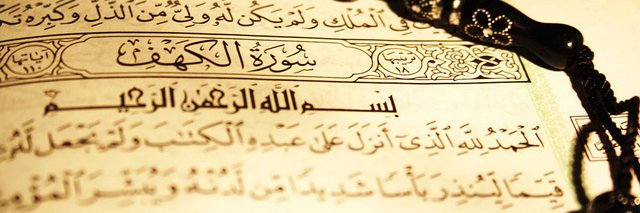 فِى ٱلْمُلْكِ وَلَمْ يَكُن لَّهُۥ وَلِىٌّ مِّنَ ٱلذُّلِّ وَكَبِّرْهُ
سُورَةُ الكَهْفِ
بِسْمِ ٱللَّهِ ٱلرَّحْمَٰنِ ٱلرَّحِيمِ
ٱلْحَمْدُ لِلَّهِ ٱلَّذِىٓ أَنزَلَ عَلَىٰ عَبْدِهِ ٱلْكِتَٰبَ وَلَمْ يَجْعَل لَّهُۥ
قَيِّمًا لِّيُنذِرَ بَأْسًا شَدِيدًا مِّن لَّدُنْهُ وَيُبَشِّرَ ٱلْمُؤْمِ